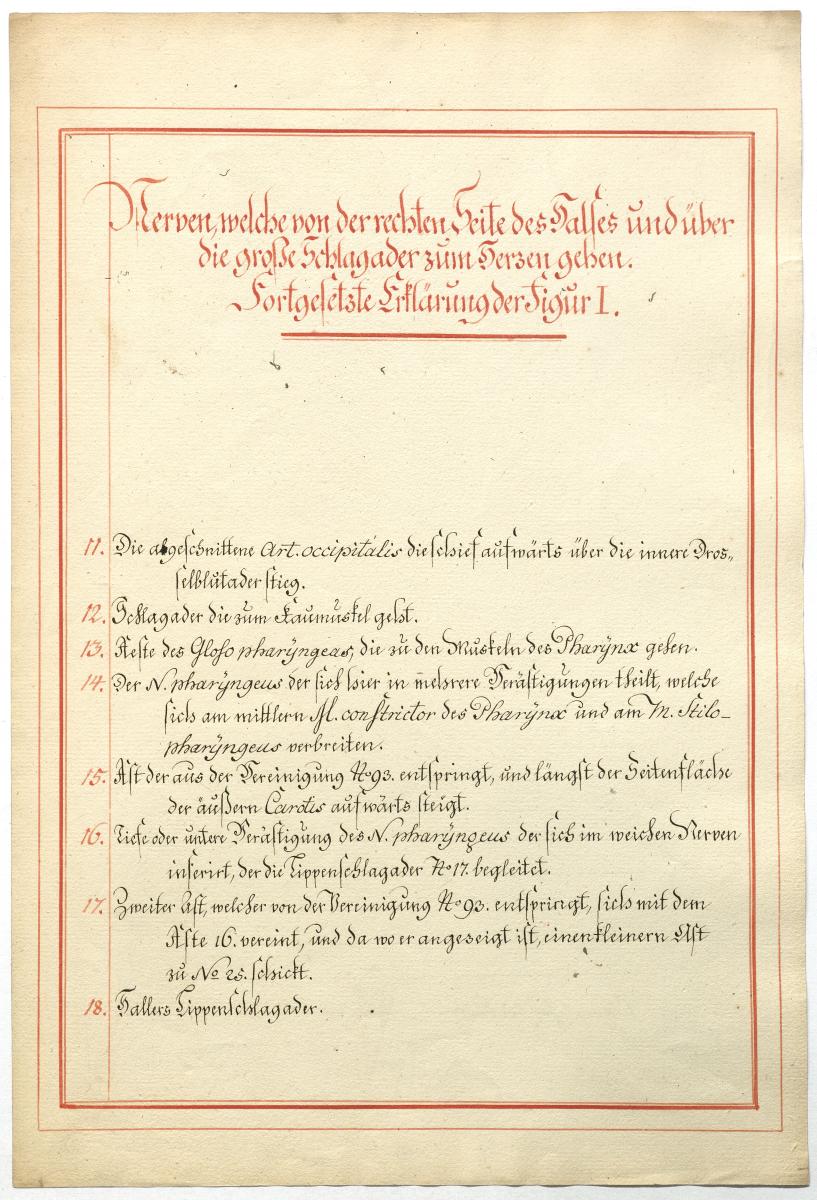 Nerven, welche von der rechten Seite des Halses und über
die große Schlagader zum Herzen gehen.
Fortgesetzte Erklärung der Figur I.
11. Die abgeschnittene Art. occipitalis die schief aufwärts über die innere Dros„
selblutader stieg.
12. Schlagader die zum Kaumuskel geht.
13. Aeste des Gloso pharÿngeas, die zu den Muskeln des Pharÿnx gehen.
14. Der N. pharÿngeus der sich hier in mehrere Verästigungen theilt, welche
sich am mittlern M. constrictor des Pharÿnx und am M. Stilo-
pharÿngeus verbreiten.
15. Ast der aus der Vereinigung No 93. entspringt, und längst der Seitenfläche
der äußern Carotis aufwärts steigt.
16. Tiefe oder untere Verästigung des N. pharÿngeus der sich im weichen Nerven
inserirt, der die Lippenschlagader No 17. begleitet.
17. Zweiter Ast, welcher von der Vereinigung No 93. entspringt, sich mit dem
Aste 16. vereint, und da wo er angezeigt ist, einen kleinern Ast
zu No 25. schickt.
18. Hallers Lippenschlagader.